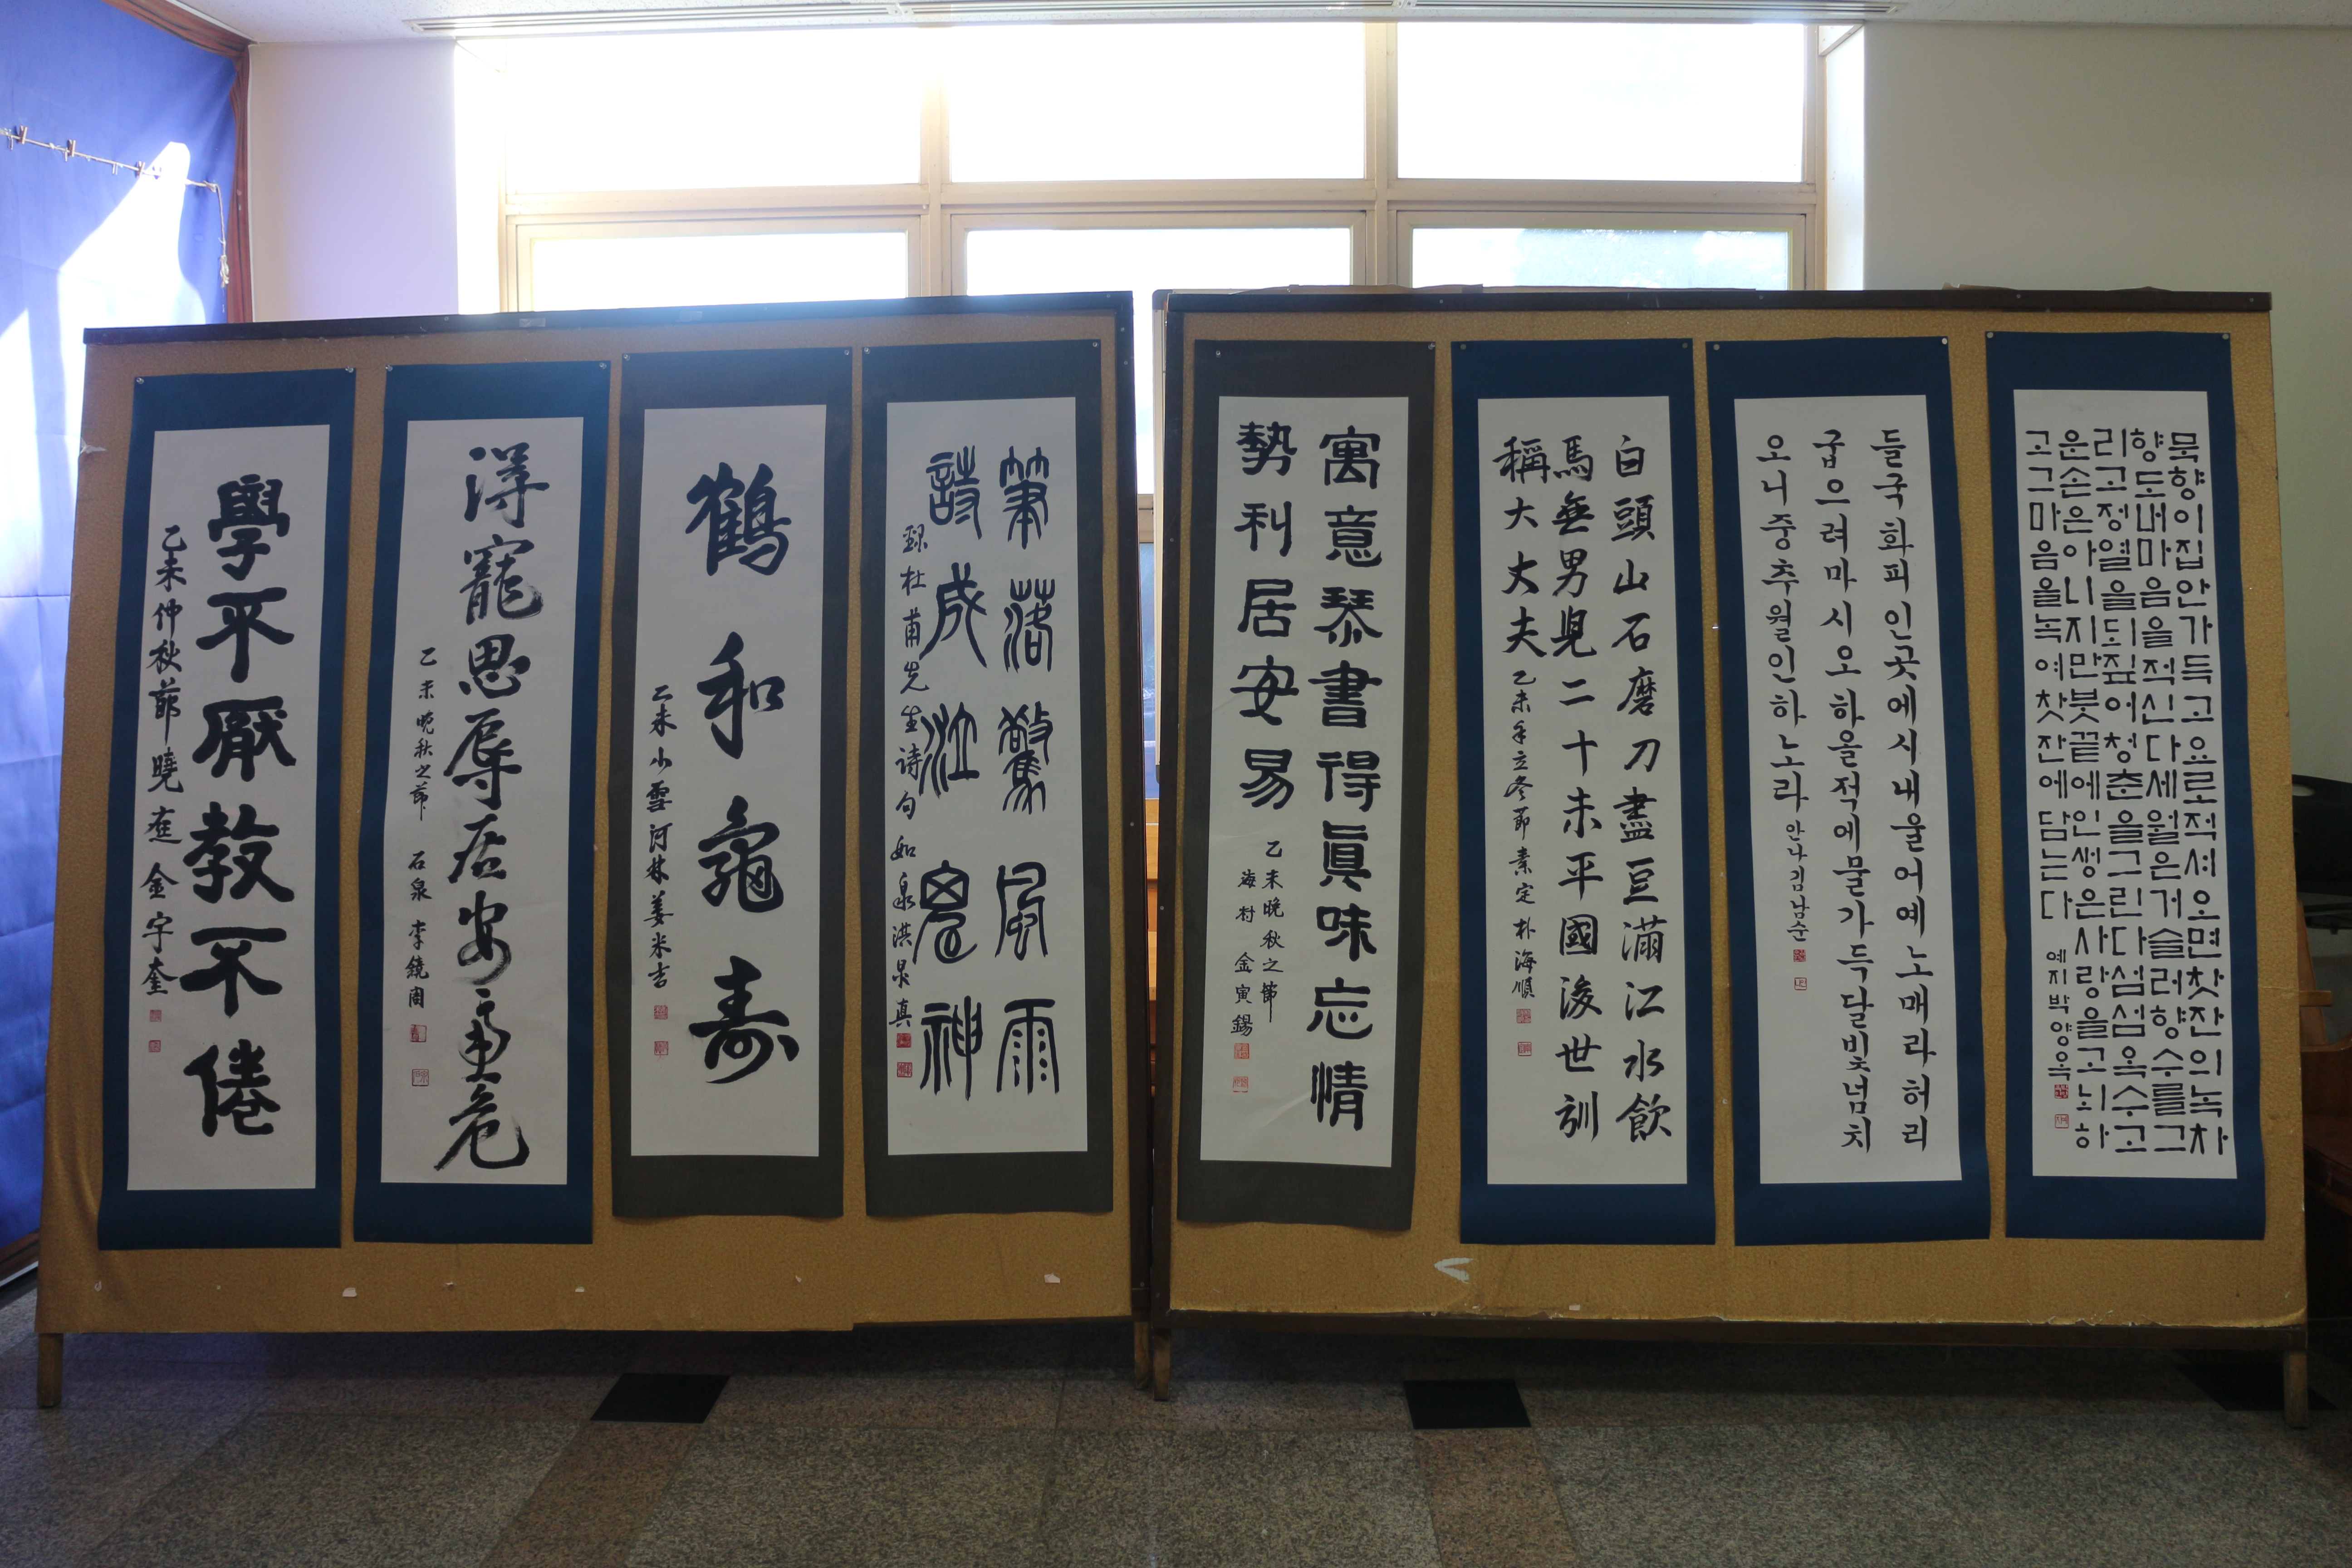 묵향이집안가득고요로적셔오면찻잔의녹차
향도내마음을적신다세월은거슬러향수를그
리고정열을되짚어청춘을그린다섬섬옥수고
운손은아니지만붓끝에인생은사랑을고뇌하
고그마음을녹여찻잔에담는다
예지박양옥
들국화피인곳에시내울어예노매라허리
굽으려마시오하올적에물가득달빛넘치
오니중추월인하노라 안나김남순
白頭山石磨刀盡豆滿江水飮
馬無男兒二十未平國後世訓
稱大大夫 乙未年立冬節 素定 朴海順
寓意琴書得眞味忘情
勢利居安易
乙未晩秋之節
海村 金寅錫
筆落驚風雨
詩成泣鬼神
錄杜甫先生詩句 如泉洪
鶴和龜壽
乙未小雪河林姜米吉
得寵思辱居安慮危
乙未晚秋之節 石泉 李 周
學不厭教不倦
乙未仲秋節曉 金宇奎